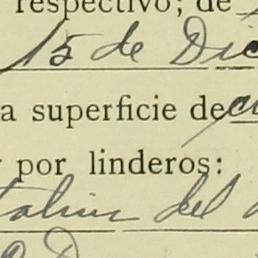 respectivo; de
15 de Dic
a superficie de
por linderos:
del